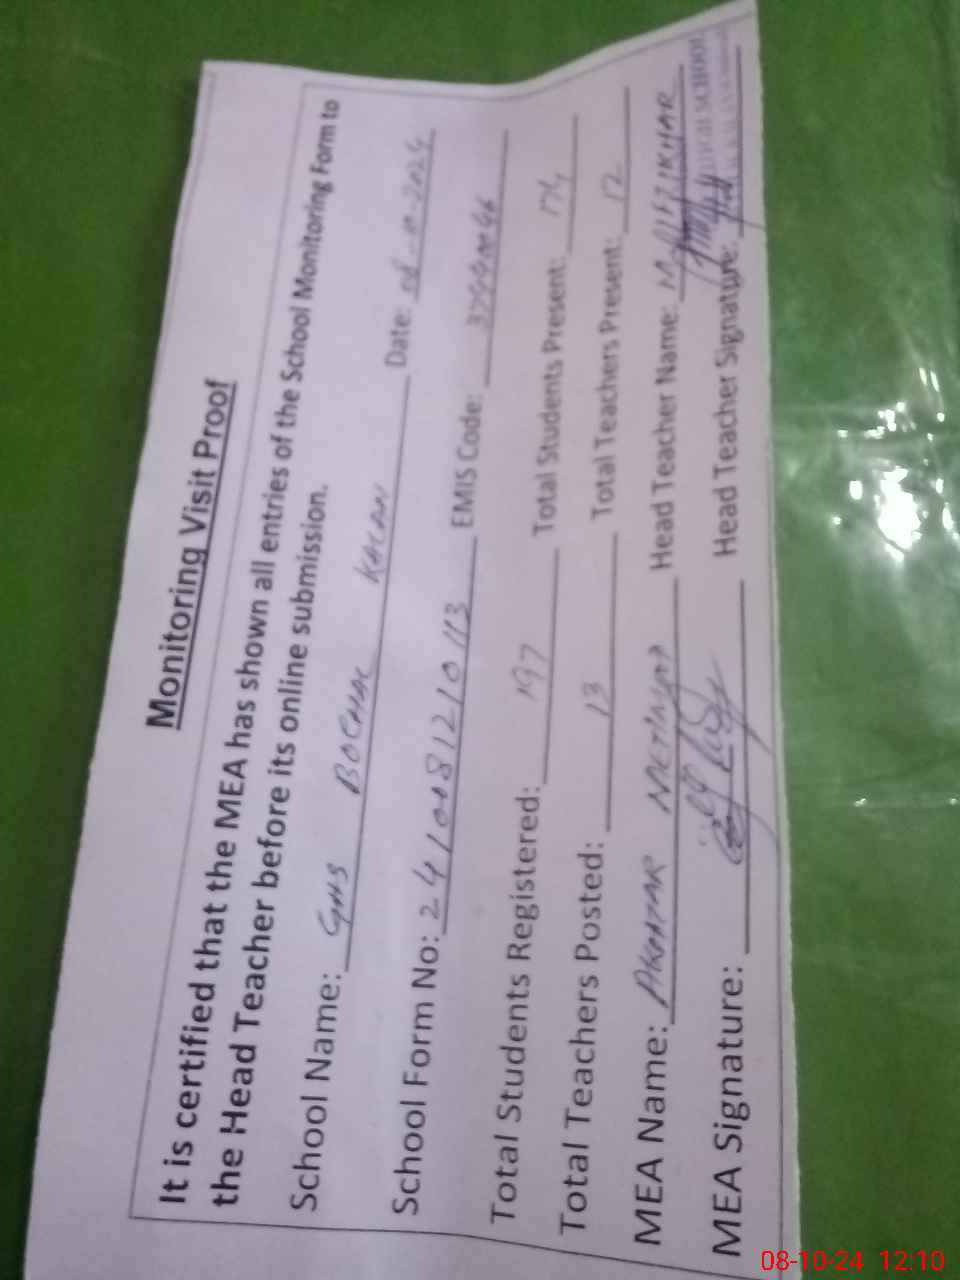 Monitoring Visit Proof
It is certified that the MEA has shown all entries of the School Monitoring Form to
the Head Teacher before its online submission.
School Name: GHS BOCHAL KALAN Date: 08-10-2024
School Form No: 2410081210113 EMIS Code:
Total Students Registered: 197 Total Students Present: 174
Total Teachers Posted: 13 Total Teachers Present: 12
MEA Name: Head Teacher Name: M. IFTIKHAR
MEA Signature: Head Teacher Signature:
HIGH SCHOOL
08-10-24 12:10